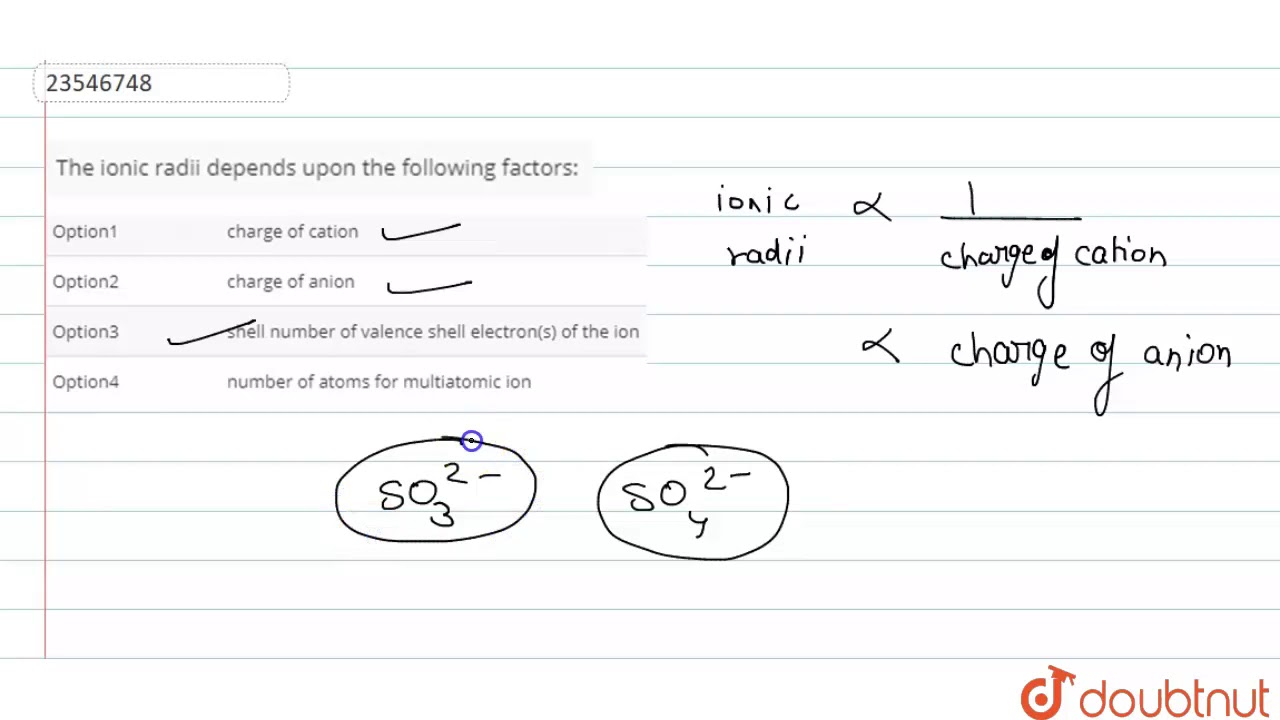 23546748
The ionic radii depends upon the following factors:
Option1 charge of cation
Option2 charge of anion
Option3 shell number of valence shell electron(s) of the ion
Option4 number of atoms for multiatomic ion
ionic radii ∝ 1 / charge of cation
∝ charge of anion
SO₃²⁻ SO₄²⁻
doubtnut